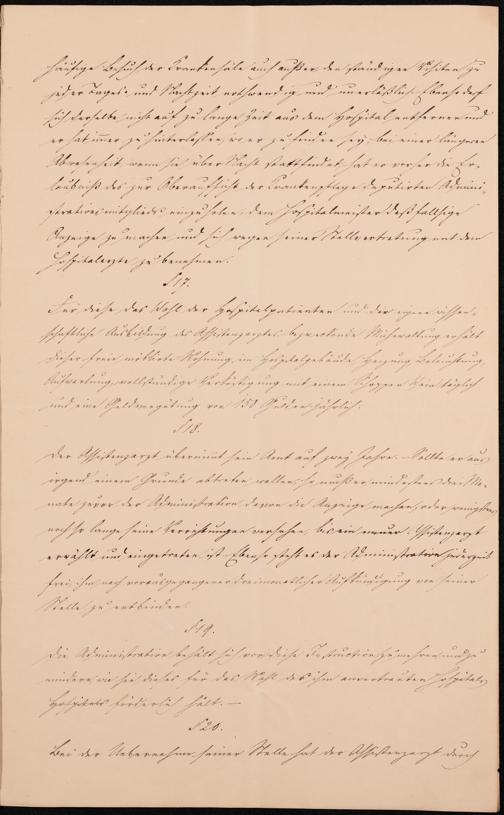 häufige Besuch der Krankensäle auch außer den ständigen Visiten zu
jeder Tages- und Nachtzeit nothwendig und unerläßlich. Ebenso darf
sich derselbe nicht auf zu lange Zeit aus dem Hospital entfernen und
er hat immer zu hinterlassen, wo er zu finden sey; bei einer längeren
Abwesenheit, wenn sie über Nacht stattfindet, hat er vorher die Er-
laubniß des zur Oberaufsicht der Krankenpflege deputirten Admini-
strationsmitgliedes einzuholen, dem Hospitalmeister deßfallsige
Anzeige zu machen und sich wegen seiner Stellvertretung mit dem
Hospitalarzte zu benehmen.
§ 17.
Für diese das Wohl der Hospitalpatienten und der eigene wissen-
schaftliche Ausbildung des Assistenzarztes bezweckende Mühewaltung erhält
dieser freie möblirte Wohnung im Hospitalgebäude, Heizung, Beleuchtung,
Aufwartung, vollständige Verköstigung mit einem Schoppen Wein täglich
und eine Geldvergütung von 150 Gulden jährlich.
§ 18.
Der Assistenzarzt übernimt sein Amt auf zwey Jahre. – Sollte er aus
irgend einem Grunde abtreten wollen, so müßte er mindestens drei Mo-
nate zuvor der Administration davon die Anzeige machen, oder wenigstens
noch so lange seine Verrichtungen versehen, bis ein neuer Assistenzarzt
erwählt und eingetreten ist. Ebenso steht es der Administration jederzeit
frei, ihn nach vorausgegangener dreimonatlicher Aufkündigung von seiner
Stelle zu entbinden.
§ 19.
Die Administration behält sich vor, diese Instruction zu mehren und zu
mindern, wie sie dieses für das Wohl des ihr anvertrauten Hospitals
förderlich hält. –
§ 20.
Bei der Uebernahme seiner Stelle hat der Assistenzarzt durch